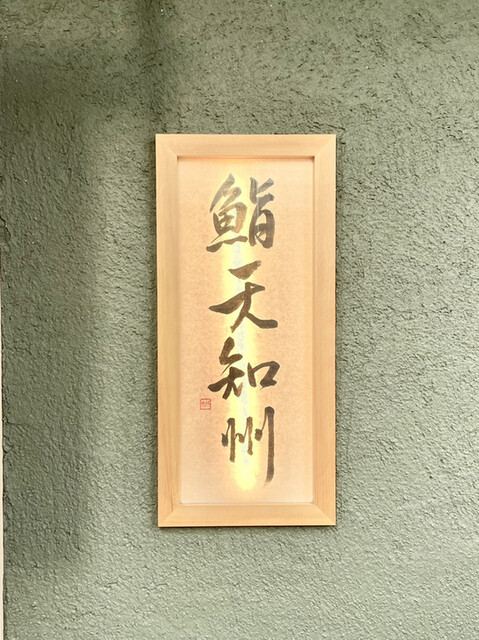 鮨天知州